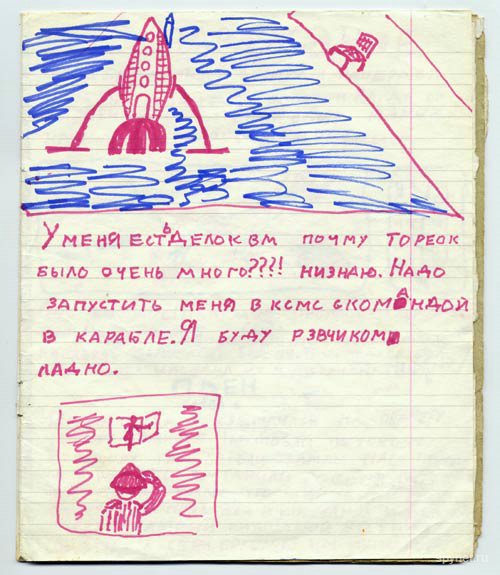 У МЕНЯ ЕСТЬ ДЕЛОК ВМ ПОЧМУ ТОРЕОК
БЫЛО ОЧЕНЬ МНОГО???! НИЗНАЮ. НАДО
ЗАПУСТИТЬ МЕНЯ В КСМС С КОМАНДОЙ
В КАРАБЛЕ. Я БУДУ РЗВЧИКОМ
ЛАДНО.